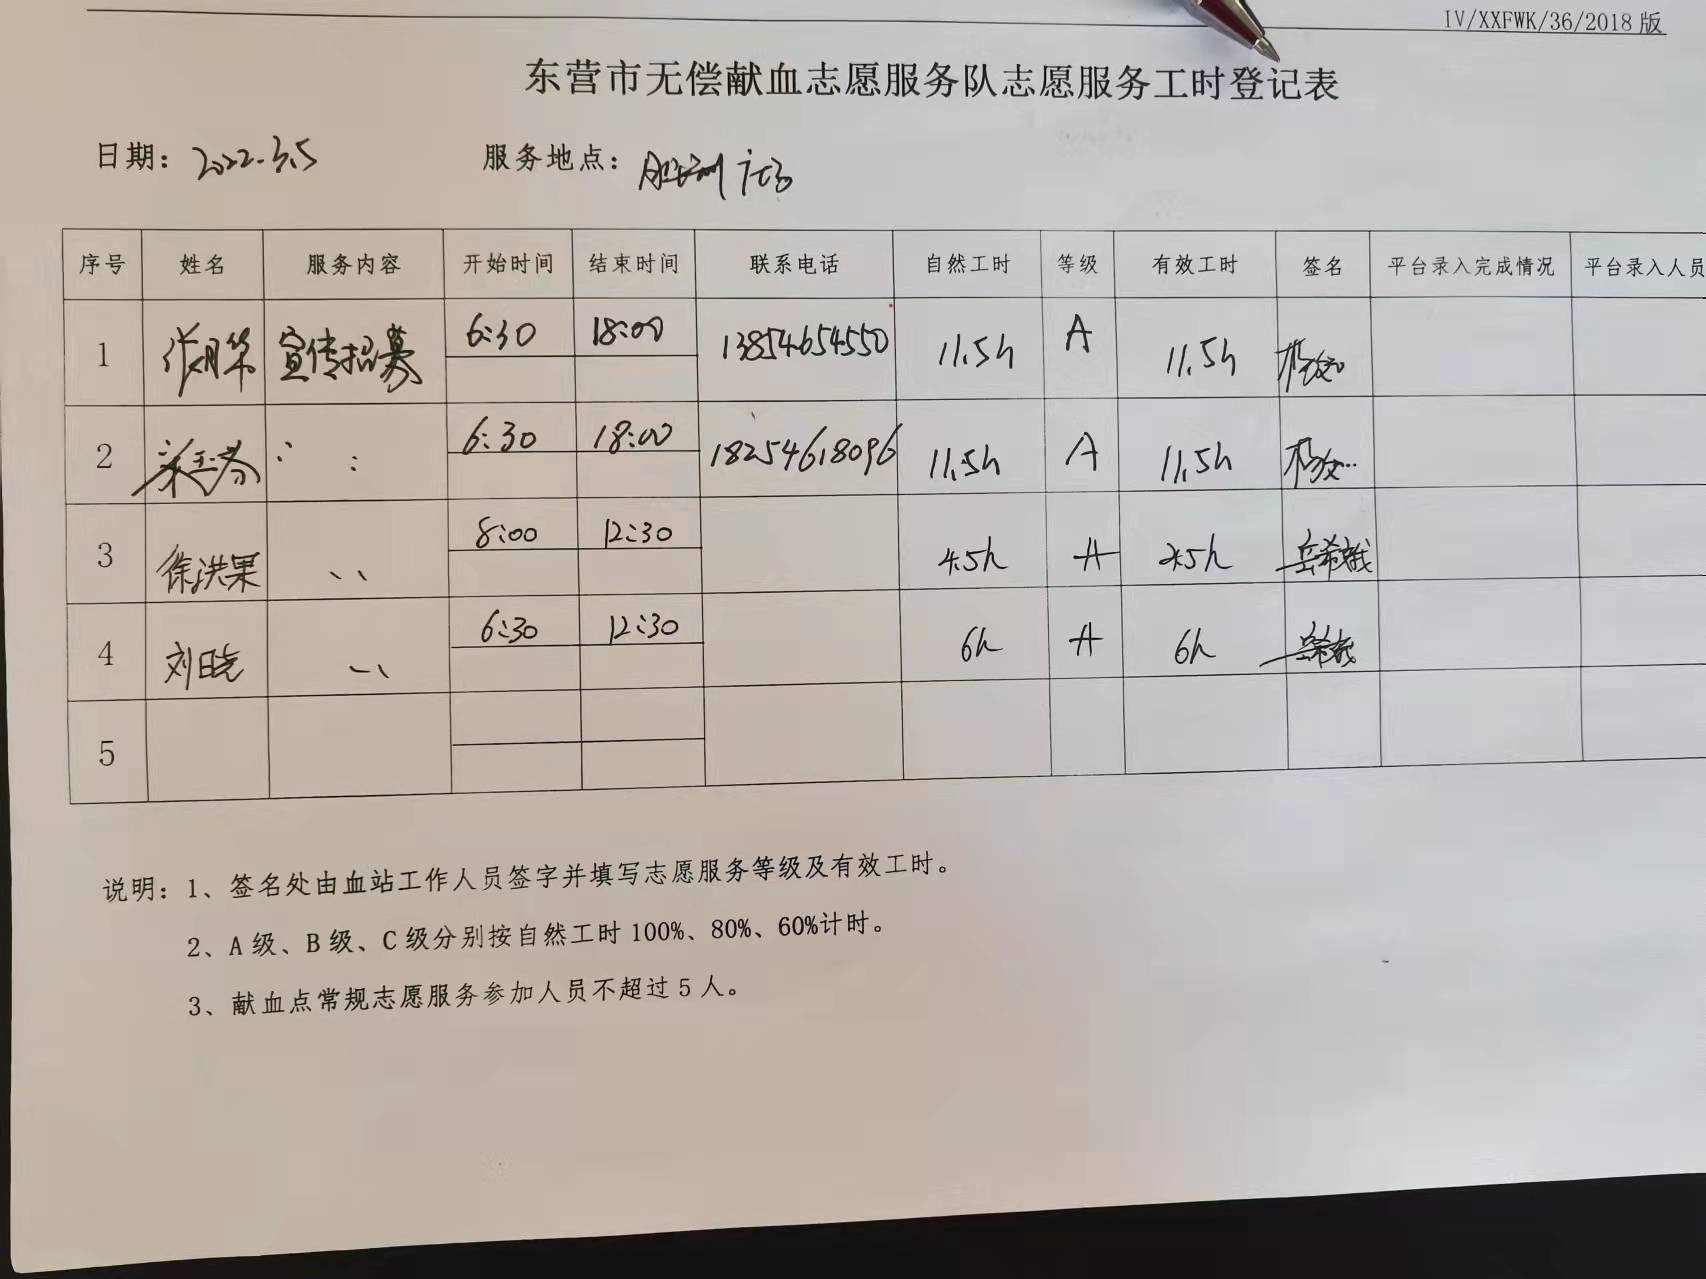 IV/XXFWK/36/2018版
东营市无偿献血志愿服务队志愿服务工时登记表
日期：2022.3.5 服务地点：
序号 姓名 服务内容 开始时间 结束时间 联系电话 自然工时 等级 有效工时 签名 平台录入完成情况 平台录入人员
1 宣传招募 6:30 18:00 13854654550 11.5h A 11.5h
2 6:30 18:00 18254618096 11.5h A 11.5h
3 徐洪果 8:00 12:30 4.5h A 4.5h
4 刘晓 6:30 12:30 6h A 6h
5
说明：1、签名处由血站工作人员签字并填写志愿服务等级及有效工时。
2、A级、B级、C级分别按自然工时100%、80%、60%计时。
3、献血点常规志愿服务参加人员不超过5人。